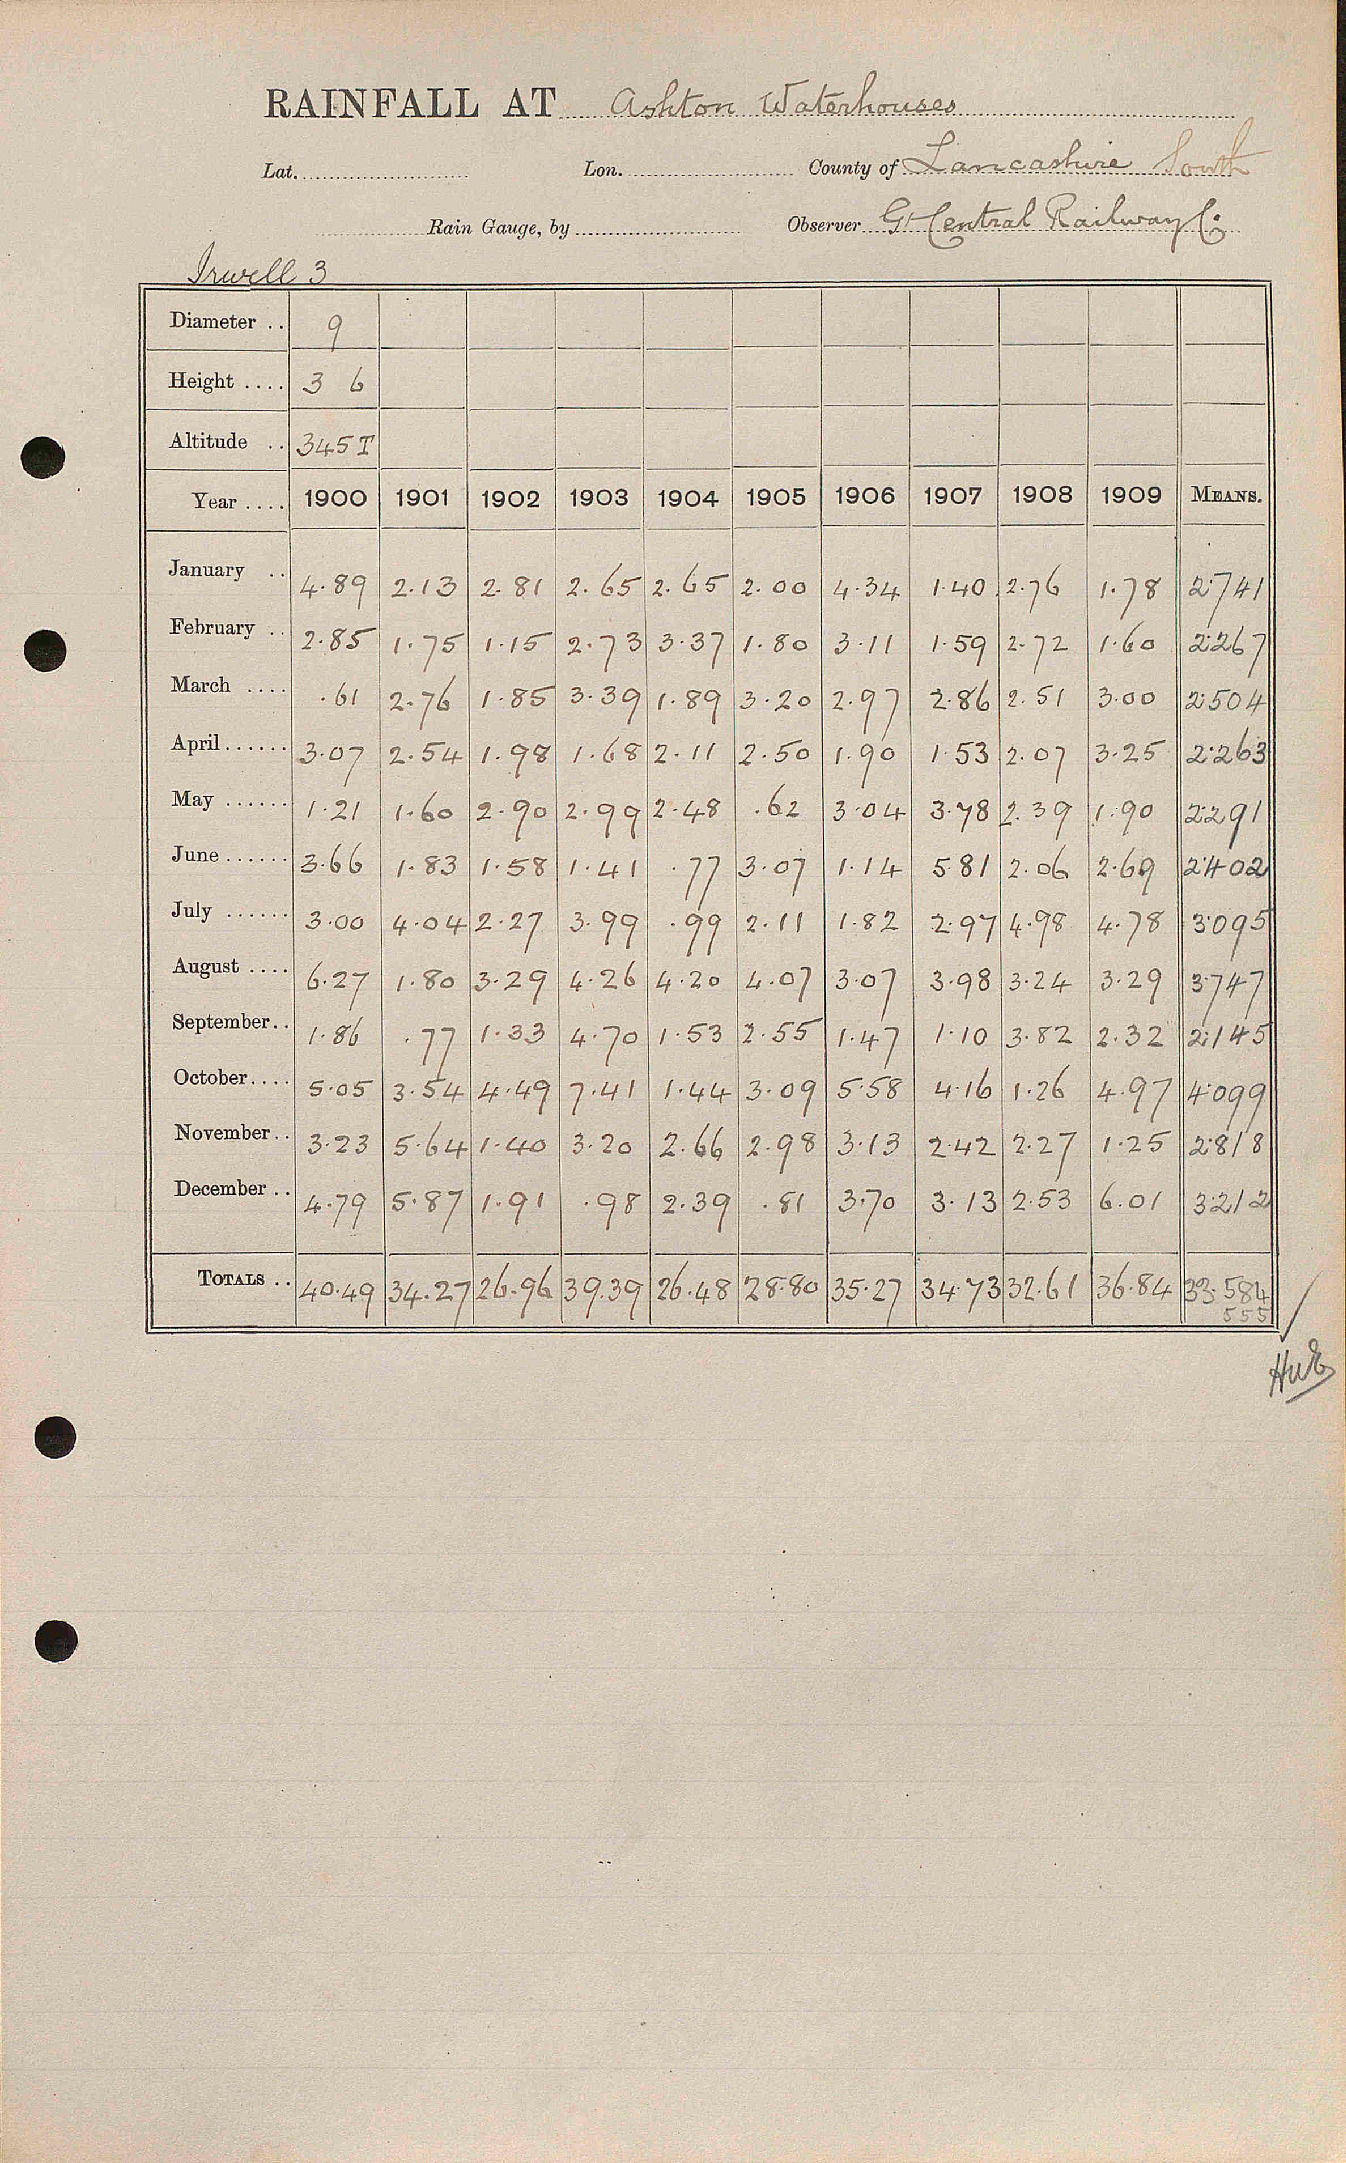 RAINFALL AT Ashton Waterhouses
Lat. Lon. County of Lancashire South
Rain Gauge, by Observer Gt Central Railway Co
Irwell 3
Diameter .. 9
Height .... 3 6
Altitude .. 345 T
Year .... 1900 1901 1902 1903 1904 1905 1906 1907 1908 1909 MEANS.
January .. 4.89 2.13 2.81 2.65 2.65 2.00 4.34 1.40 2.76 1.78 2.741
February .. 2.85 1.75 1.15 2.73 3.37 1.80 3.11 1.59 2.72 1.60 2.267
March .... .61 2.76 1.85 3.39 1.89 3.20 2.97 2.86 2.51 3.00 2.504
April...... 3.07 2.54 1.98 1.68 2.11 2.50 1.90 1.53 2.07 3.25 2.263
May ...... 1.21 1.60 2.90 2.99 2.48 .62 3.04 3.78 2.39 1.90 2.291
June ...... 3.66 1.83 1.58 1.41 .77 3.07 1.14 5.81 2.06 2.69 2.402
July ...... 3.00 4.04 2.27 3.99 .99 2.11 1.82 2.97 4.98 4.78 3.095
August .... 6.27 1.80 3.29 4.26 4.20 4.07 3.07 3.98 3.24 3.29 3.747
September.. 1.86 .77 1.33 4.70 1.53 2.55 1.47 1.10 3.82 2.32 2.145
October.... 5.05 3.54 4.49 7.41 1.44 3.09 5.58 4.16 1.26 4.97 4.099
November.. 3.23 5.64 1.40 3.20 2.66 2.98 3.13 2.42 2.27 1.25 2.818
December .. 4.79 5.87 1.91 .98 2.39 .81 3.70 3.13 2.53 6.01 3.212
TOTALS .. 40.49 34.27 26.96 39.39 26.48 28.80 35.27 34.73 32.61 36.84 33.584
555